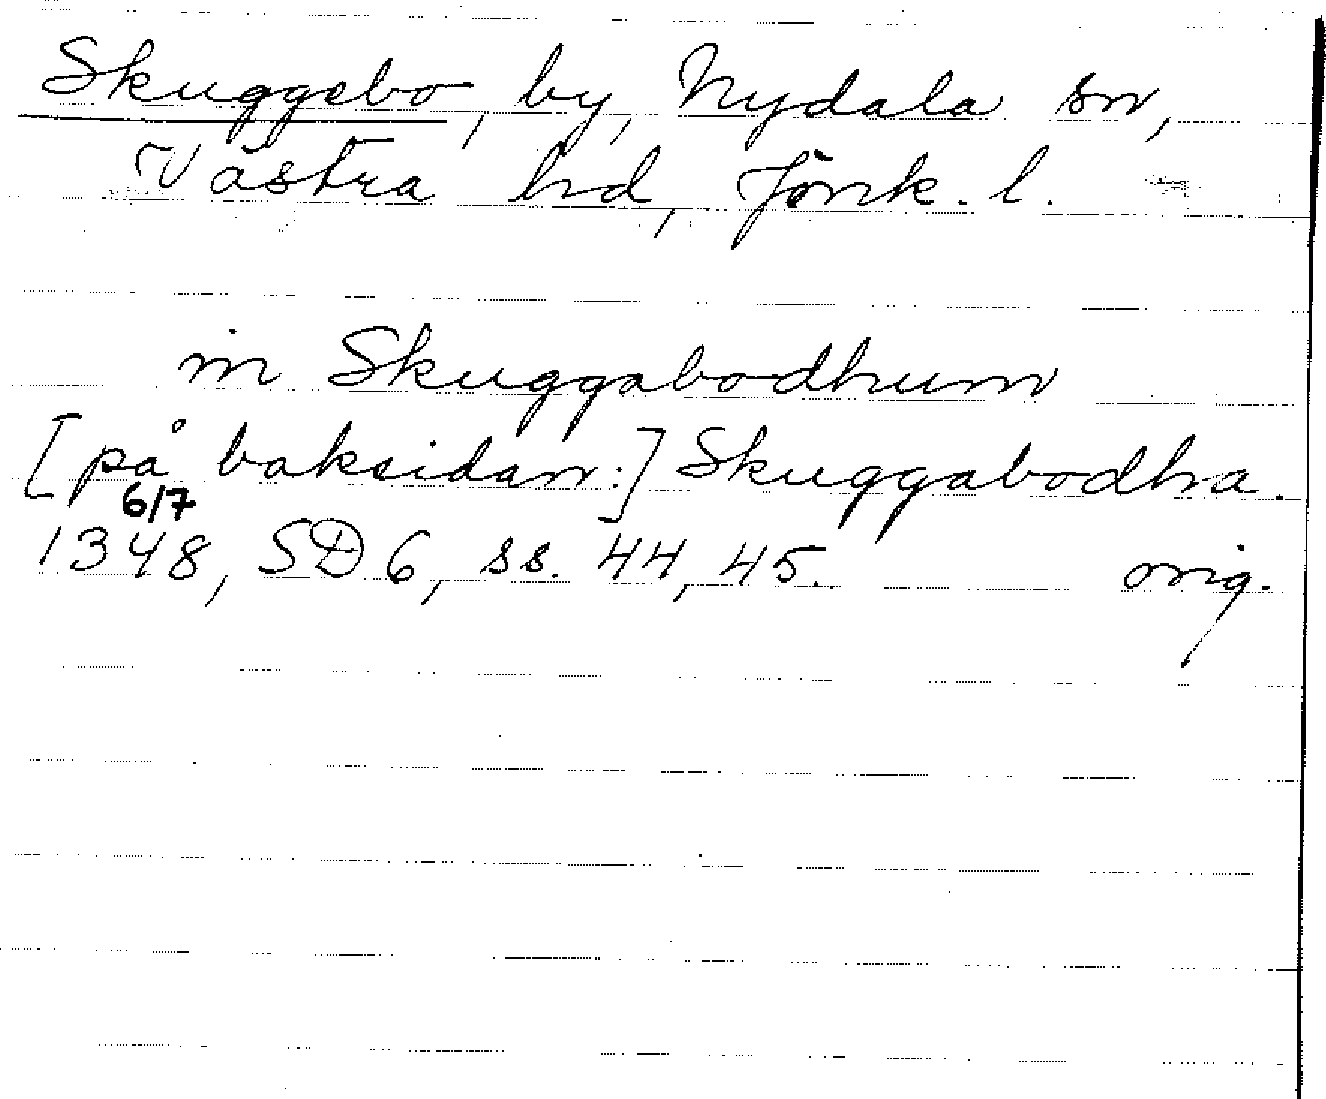 Skuggebo, by, Nydala sn,
Västra hd, Jönk. l.
in Skuggabodhum
[på baksidan:] Skuggabodha.
6/7
1348, SD 6, ss. 44, 45. orig.